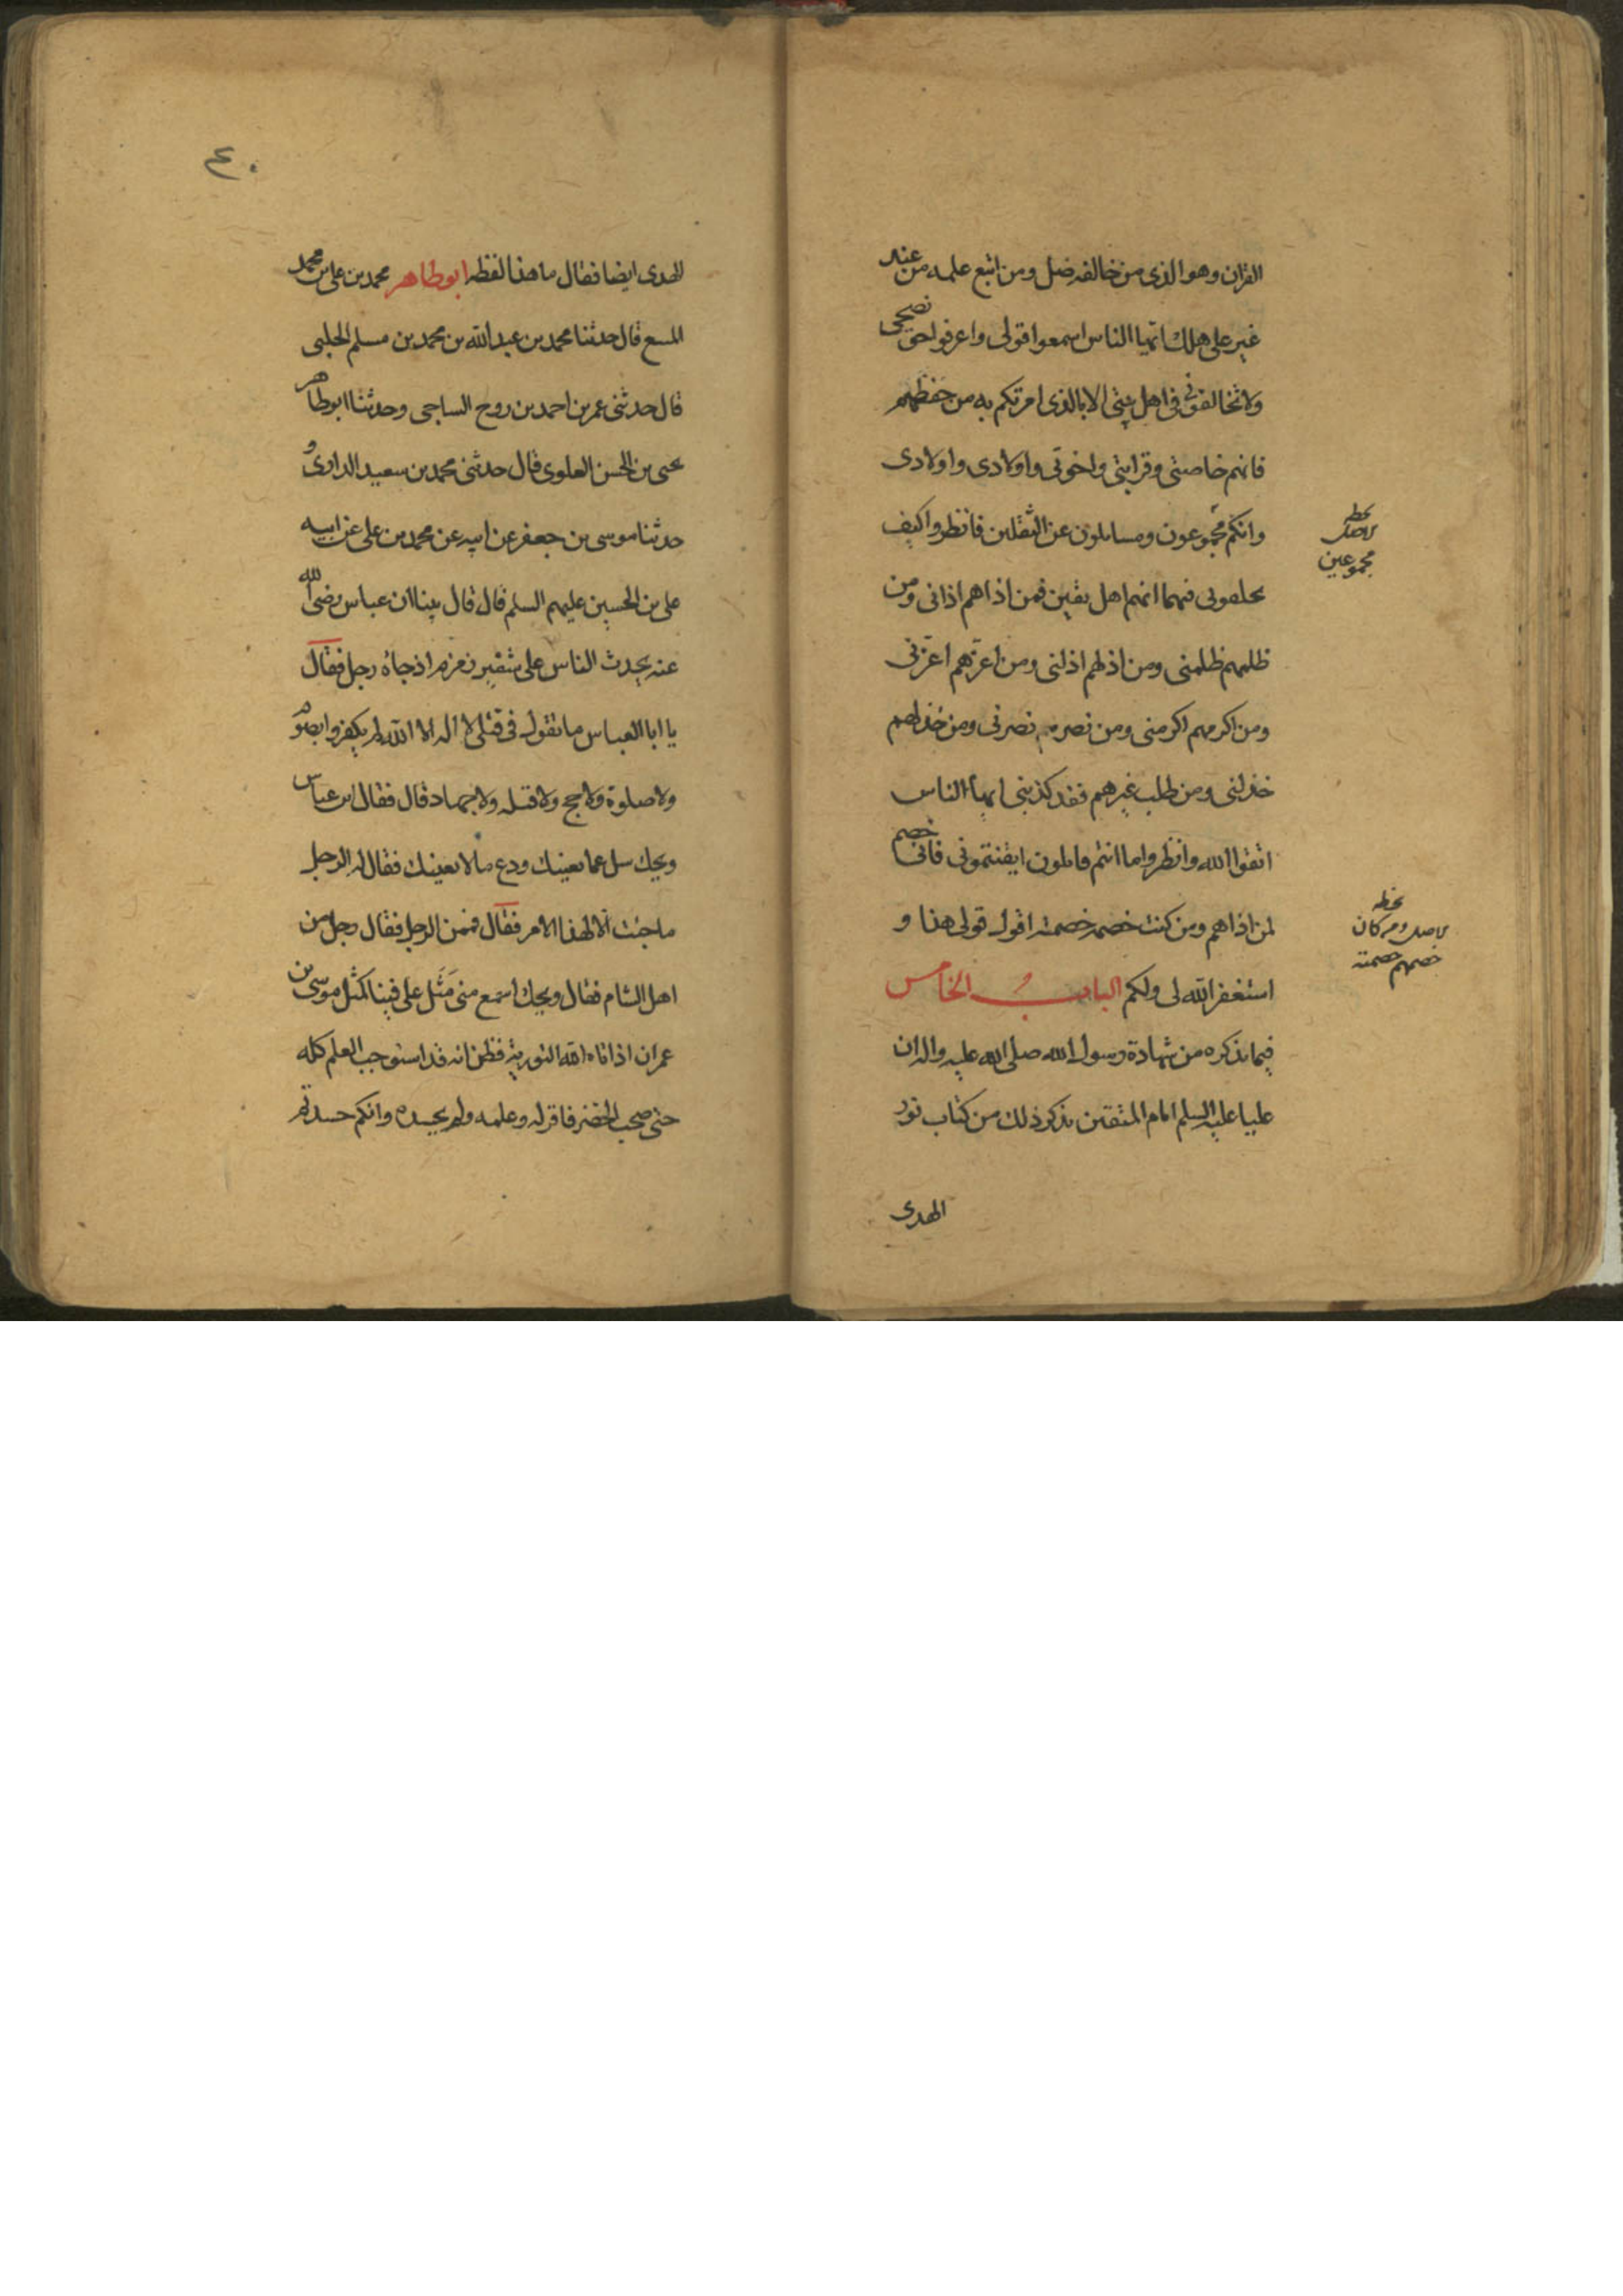 القران وهو الذى من خالفه ضل ومن اتبع علمه من عند
غير على هلك ايها الناس اسمعوا قولى واعرفوا حق نصحى
ولا تخالفونى فى اهل بيتى الا بالذى امرتكم به من حفظهم
فانهم خاصتى وقرابتى واخوتى واولادى واولادى
وانكم مجموعون ومسايلون عن الثقلين فانظروا كيف
تخلفونى فيهما انهم اهل بيتى فمن اذاهم اذانى ومن
ظلمهم ظلمنى ومن اذلهم اذلنى ومن اعزهم اعزنى
ومن اكرمهم اكرمنى ومن نصرهم نصرنى ومن خذلهم
خذلنى ومن طلب غيرهم فقد كذبنى ايها الناس
اتقوا الله وانظروا ما انتم قايلون اذا لقيتمونى فانى خصم
لمن اذاهم ومن كنت خصمه خصمته اقول قولى هذا و
استغفر الله لى ولكم الباب الخامس
فيما نذكره من شهادة رسول الله صلى الله عليه واله ان
عليا عليه السلم امام المتقين نذكر ذلك من كتاب نور
الهدى
مجموعين
الاصل ومن كان
خصمهم خصمته
٤٠
الهدى ايضا فقال ما هذا لفظه ابوطاهر محمد بن على بن محمد
البيع قال حدثنا محمد بن عبد الله بن محمد بن مسلم الحلبى
قال حدثنى عمر بن احمد بن روح الساجى وحدثنا ابوطاهر
يحيى بن الحسن العلوى قال حدثنى محمد بن سعيد الدارمى
حدثنا موسى بن جعفر عن ابيه عن محمد بن على عن ابيه
على بن الحسين عليهم السلم قال قال بينا ابن عباس رضى الله
عنه يحدث الناس على شفير زمزم اذ جاءه رجل فقال
يا ابا العباس ما تقول فى قتلى لا اله الا الله لم يكفروا بصوم
ولا صلوة ولا حج ولا قبله ولا جهاد قال فقال ابن عباس
ويحك سل عما يعنيك ودع ما لا يعنيك فقال له الرجل
ما جئت الا لهذا الامر فقال فممن الرجل فقال رجل من
اهل الشام فقال ويحك اسمع منى مثل على فينا كمثل موسى بن
عمران اذ اتاه الله التوريه فظن انه قد استوجب العلم كله
حتى صحب الخضر فاقر له وعلمه ولم يحسده وانكم حسدتم